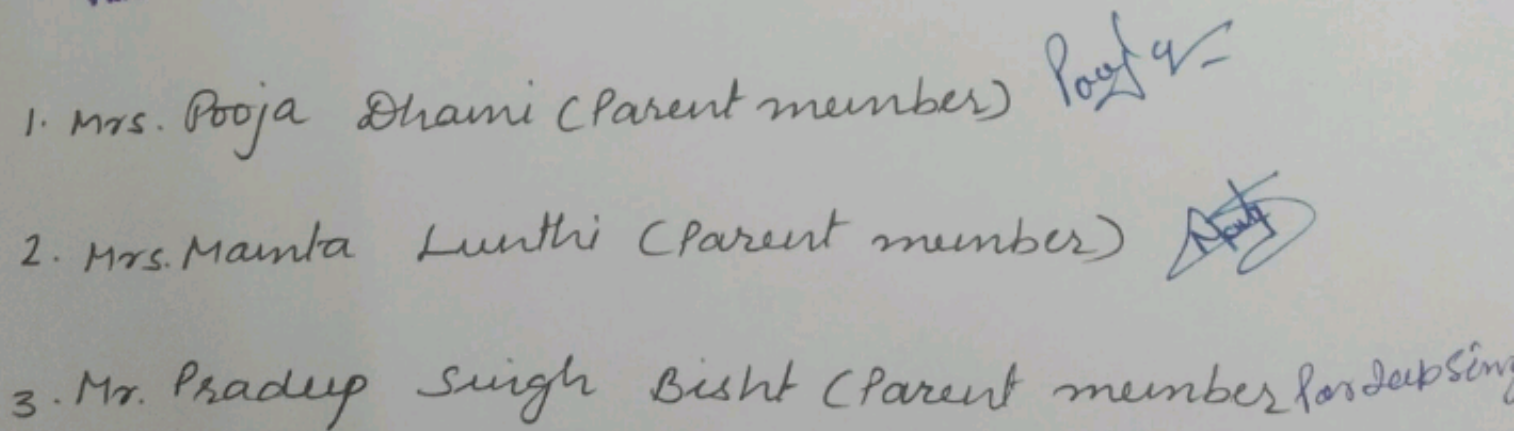 1. Mrs. Pooja Dhami (Parent member) Pooja
2. Mrs. Mamta Lunthi (Parent member)
3. Mr. Pradeep Singh Bisht (Parent member PardeepSing